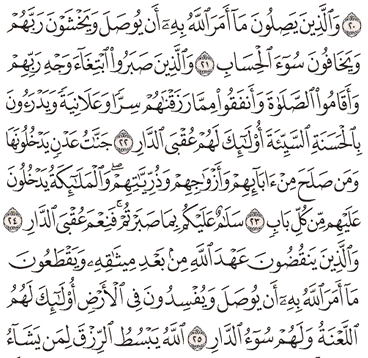 ٢٠ وَٱلَّذِينَ يَصِلُونَ مَآ أَمَرَ ٱللَّهُ بِهِۦٓ أَن يُوصَلَ وَيَخْشَوْنَ رَبَّهُمْ
وَيَخَافُونَ سُوٓءَ ٱلْحِسَابِ ٢١ وَٱلَّذِينَ صَبَرُوا۟ ٱبْتِغَآءَ وَجْهِ رَبِّهِمْ
وَأَقَامُوا۟ ٱلصَّلَوٰةَ وَأَنفَقُوا۟ مِمَّا رَزَقْنَٰهُمْ سِرًّا وَعَلَانِيَةً وَيَدْرَءُونَ
بِٱلْحَسَنَةِ ٱلسَّيِّئَةَ أُو۟لَٰٓئِكَ لَهُمْ عُقْبَى ٱلدَّارِ ٢٢ جَنَّٰتُ عَدْنٍ يَدْخُلُونَهَا
وَمَن صَلَحَ مِنْ ءَابَآئِهِمْ وَأَزْوَٰجِهِمْ وَذُرِّيَّٰتِهِمْ ۖ وَٱلْمَلَٰٓئِكَةُ يَدْخُلُونَ
عَلَيْهِم مِّن كُلِّ بَابٍ ٢٣ سَلَٰمٌ عَلَيْكُم بِمَا صَبَرْتُمْ ۚ فَنِعْمَ عُقْبَى ٱلدَّارِ ٢٤
وَٱلَّذِينَ يَنقُضُونَ عَهْدَ ٱللَّهِ مِنۢ بَعْدِ مِيثَٰقِهِۦ وَيَقْطَعُونَ
مَآ أَمَرَ ٱللَّهُ بِهِۦٓ أَن يُوصَلَ وَيُفْسِدُونَ فِى ٱلْأَرْضِ ۙ أُو۟لَٰٓئِكَ لَهُمُ
ٱللَّعْنَةُ وَلَهُمْ سُوٓءُ ٱلدَّارِ ٢٥ ٱللَّهُ يَبْسُطُ ٱلرِّزْقَ لِمَن يَشَآءُ